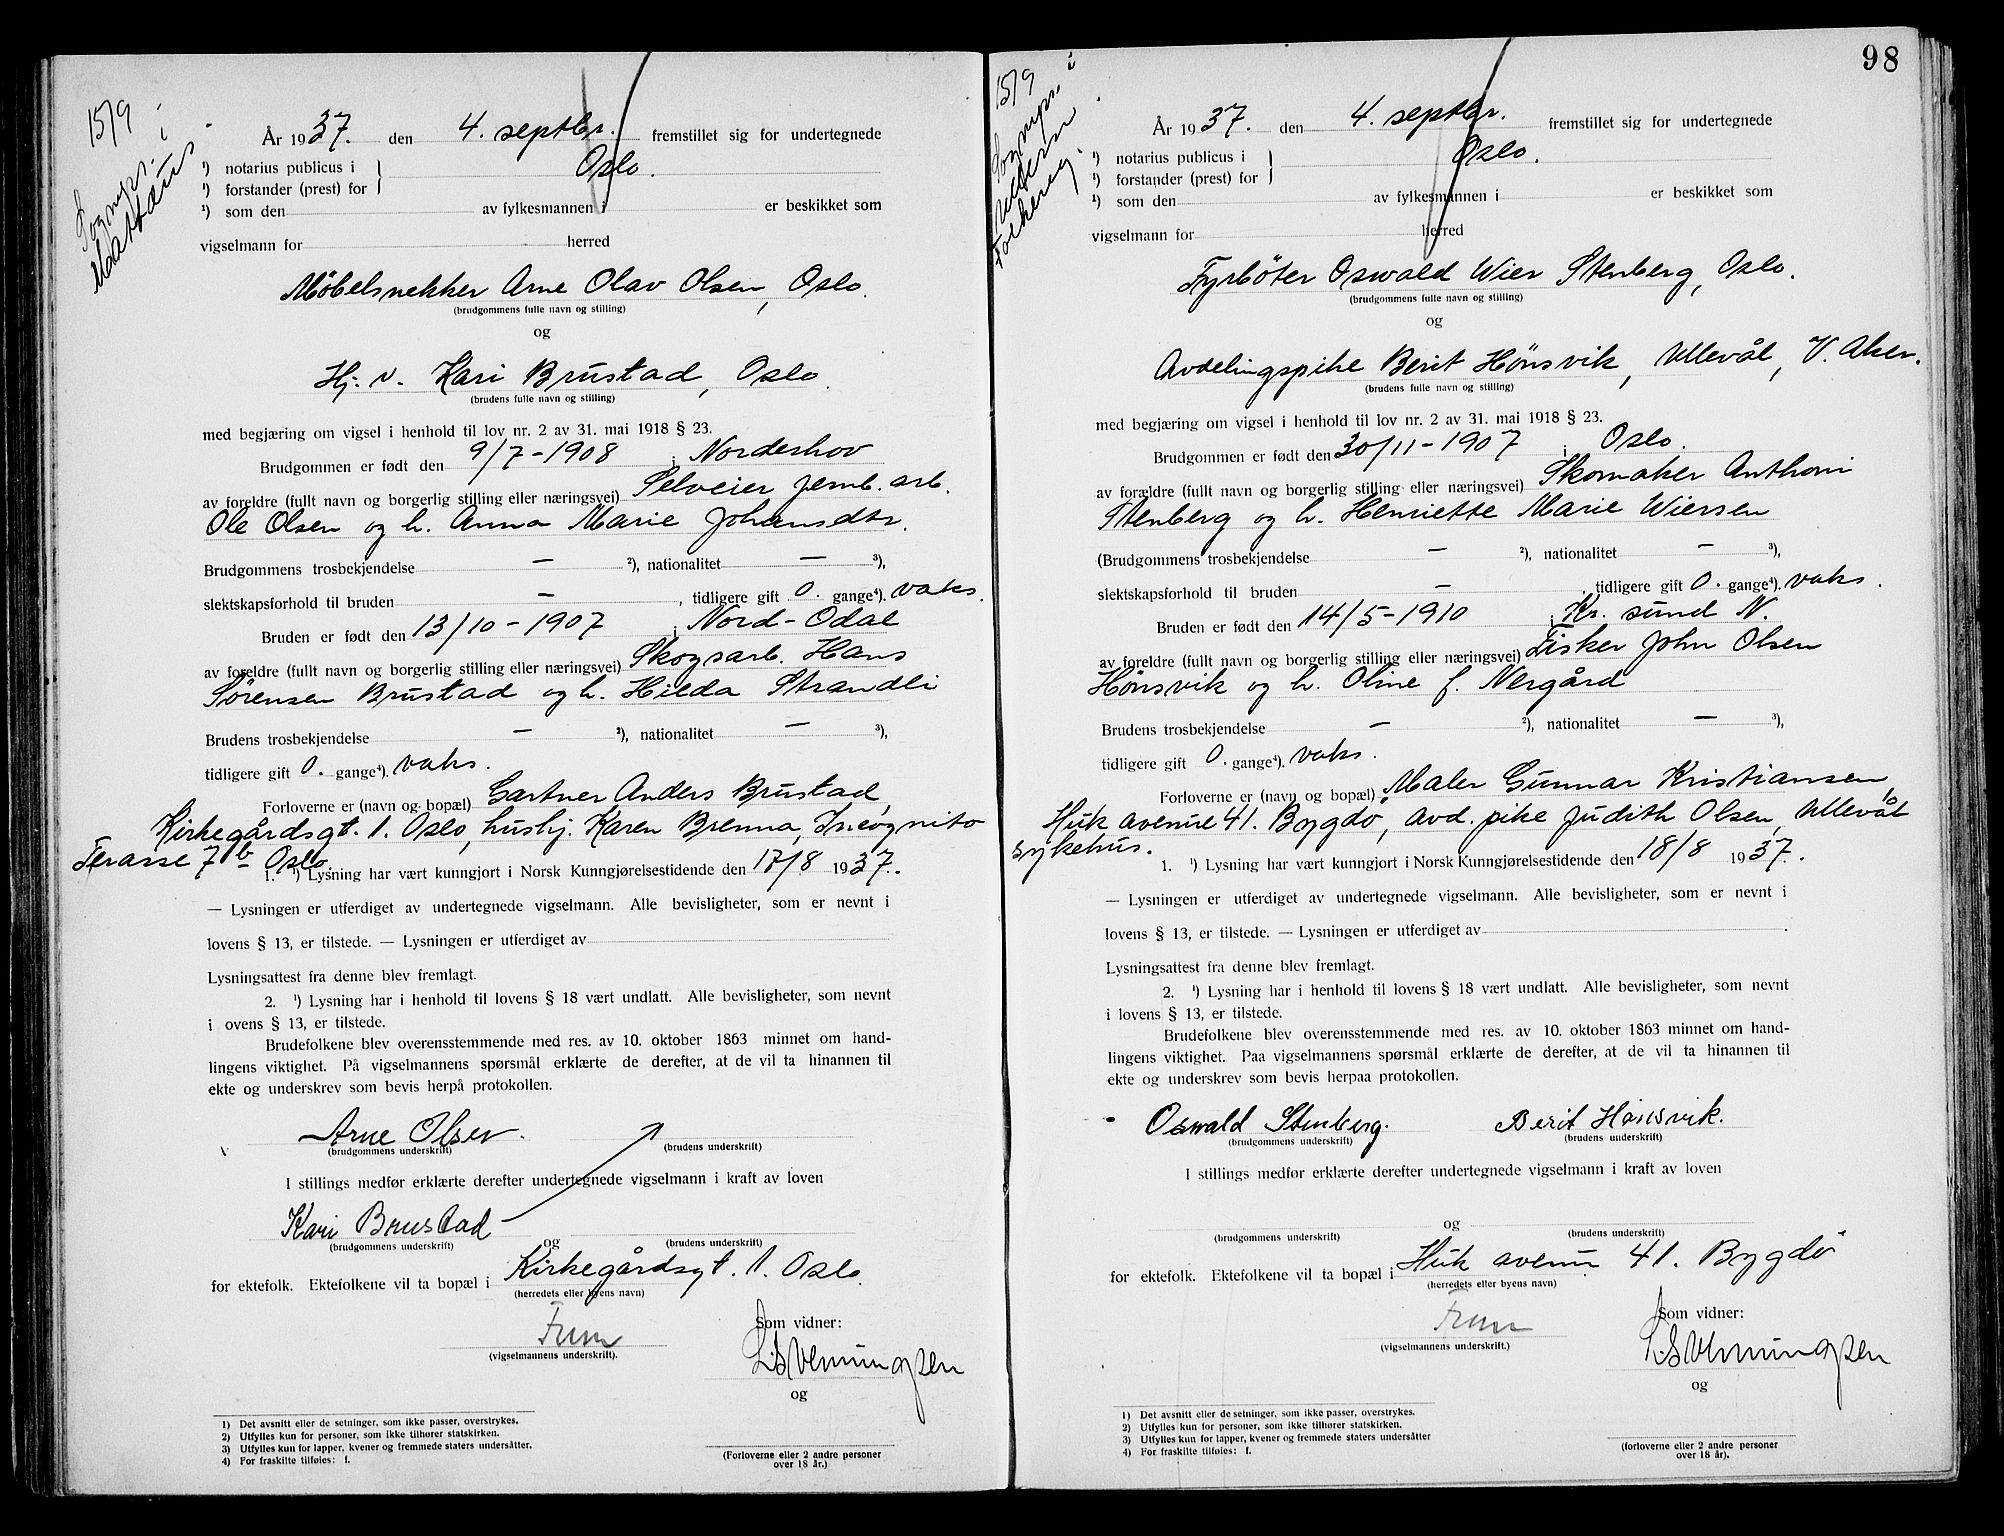 15/9
Sognepr. i
Matteus
År 1937. den 4. septbr. fremstillet sig for undertegnede
¹) notarius publicus i } Oslo.
¹) forstander (prest) for
¹) som den av fylkesmannen i er beskikket som
vigselmann for herred
Møbelsnekker Arne Olav Olsen, Oslo.
(brudgommens fulle navn og stilling)
og
Hj. v. Kari Brustad, Oslo.
(brudens fulle navn og stilling)
med begjæring om vigsel i henhold til lov nr. 2 av 31. mai 1918 § 23.
Brudgommen er født den 9/7-1908 i Norderhov
av foreldre (fullt navn og borgerlig stilling eller næringsvei) Selveier jernb. arb.
Ole Olsen og h. Anna Marie Johansdtr.
Brudgommens trosbekjendelse — ²), nationalitet — ³),
slektskapsforhold til bruden — , tidligere gift 0. gange⁴). vaks.
Bruden er født den 13/10-1907 i Nord-Odal
av foreldre (fullt navn og borgerlig stilling eller næringsvei) Skogsarb. Hans
Sørensen Brustad og h. Hilda Strandli
Brudens trosbekjendelse — ²), nationalitet — ³),
tidligere gift 0. gange⁴). vaks.
Forloverne er (navn og bopæl) Gartner Anders Brustad,
Kirkegårdsgt. 1. Oslo, hushj. Karen Brenna, Incognito
Terasse 7b Oslo.
1. ¹) Lysning har vært kunngjort i Norsk Kunngjørelsestidende den 17/8 1937.
— Lysningen er utferdiget av undertegnede vigselmann. Alle bevisligheter, som er nevnt i
lovens § 13, er tilstede. — Lysningen er utferdiget av
Lysningsattest fra denne blev fremlagt.
2. ¹) Lysning har i henhold til lovens § 18 vært undlatt. Alle bevisligheter, som nevnt
i ovens § 13, er tilstede.
Brudefolkene blev overensstemmende med res. av 10. oktober 1863 minnet om hand-
lingens viktighet. På vigselmannens spørsmål erklærte de derefter, at de vil ta hinannen til
ekte og underskrev som bevis herpå protokollen.
Arne Olsen.
(brudgommens underskrift) (brudens underskrift)
I stillings medfør erklærte derefter undertegnede vigselmann i kraft av loven
Kari Brustad
(brudgommens underskrift) og (brudens underskrift)
for ektefolk. Ektefolkene vil ta bopæl i Kirkegårdsgt. 1. Oslo.
(herredets eller byens navn)
Som vidner:
(vigselmannens underskrift).
og
1) Det avsnitt eller de setninger, som ikke passer, overstrykes.
2) Utfylles kun for personer, som ikke tilhører statskirken.
3) Utfylles kun for lapper, kvener og fremmede staters undersåtter.
4) For fraskilte tilføies: f.
(Forloverne eller 2 andre personer
over 18 år.)
98
15/9
Sognepr. i
Folkereg.
År 1937. den 4. septbr. fremstillet sig for undertegnede
¹) notarius publicus i } Oslo.
¹) forstander (prest) for
¹) som den av fylkesmannen i er beskikket som
vigselmann for herred
Fyrbøter Oswald Wier Stenberg, Oslo.
(brudgommens fulle navn og stilling)
og
Avdelingspike Berit Hønsvik, Ullevål, V. Aker.
(brudens fulle navn og stilling)
med begjæring om vigsel i henhold til lov nr. 2 av 31. mai 1918 § 23.
Brudgommen er født den 30/11-1907 i Oslo.
av forældre (fullt navn og borgerlig stilling eller næringsvei) Skomaker Anthoni
Stenberg og h. Henriette Marie Wiersen
(Brudgommens trosbekjendelse — ²), nationalitet — ³),
slektskapsforhold til bruden — , tidligere gift 0. gange⁴). vaks.
Bruden er født den 14/5-1910 i Kr. sund N.
av foreldre (fullt navn og borgerlig stilling eller næringsvei) Fisker John Olsen
Hønsvik og h. Oline f. Nergård
Brudens trosbekjendelse — ²), nationalitet — ³),
tidligere gift 0. gange⁴). vaks.
Forloverne er (navn og bopæl) Maler Gunnar Kristiansen,
Huk avenue 41. Bygdø, avd. pike Judith Olsen, Ullevål
sykehus.
1. ¹) Lysning har vært kunngjort i Norsk Kunngjørelsestidende den 18/8 1937.
— Lysningen er utferdiget av undertegnede vigselmann. Alle bevisligheter, som er nevnt i
lovens § 13, er tilstede. — Lysningen er utferdiget av .
Lysningsattest fra denne blev fremlagt.
2. ¹) Lysning har i henhold til lovens § 18 vært undlatt. Alle bevisligheter, som nevnt
i lovens § 13, er tilstede.
Brudefolkene blev overensstemmende med res. av 10. oktober 1863 minnet om hand-
lingens viktighet. Paa vigselmannens spørsmål erklærte de derefter, at de vil ta hinannen til
ekte og underskrev som bevis herpaa protokollen.
Oswald Stenberg. Berit Hønsvik.
(brudgommens underskrift) (brudens underskrift)
I stillings medfør erklærte derefter undertegnede vigselmann i kraft av loven
og
(brudgommens underskrift) (brudens underskrift)
for ektefolk. Ektefolkene vil ta bopæl i Huk avenue 41. Bygdø
(herredets eller byens navn)
Som vidner:
(vigselmannens underskrift.)
og
1) Det avsnitt eller de setninger, som ikke passer, overstrykes.
2) Utfylles kun for personer, som ikke tilhører statskirken.
3) Utfylles kun for lapper, kvener og fremmede staters undersåtter
4) For fraskilte tilføies: f.
(forloverne eller 2 andre personer
over 18 år).